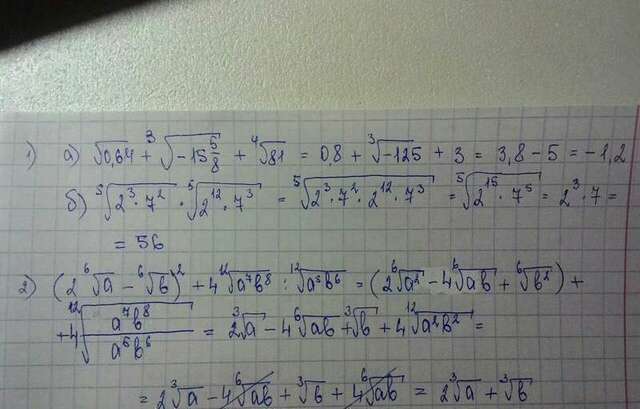 1) а) √0,64 + ³√(-15 5/8) + ⁴√81 = 0,8 + ³√-125 + 3 = 3,8 - 5 = -1,2
б) ⁵√(2³·7²) · ⁵√(2¹²·7³) = ⁵√(2³·7²·2¹²·7³) = ⁵√(2¹⁵·7⁵) = 2³·7 =
= 56
2) (2⁶√a - ⁶√b)² + 4¹²√(a⁷b⁸) : ¹²√(a⁵b⁶) = (2⁶√a² - 4⁶√ab + ⁶√b²) +
+ 4¹²√(a⁷b⁸/a⁵b⁶) = 2³√a - 4⁶√ab + ³√b + 4¹²√(a²b²) =
= 2³√a - 4⁶√ab + ³√b + 4⁶√ab = 2³√a + ³√b